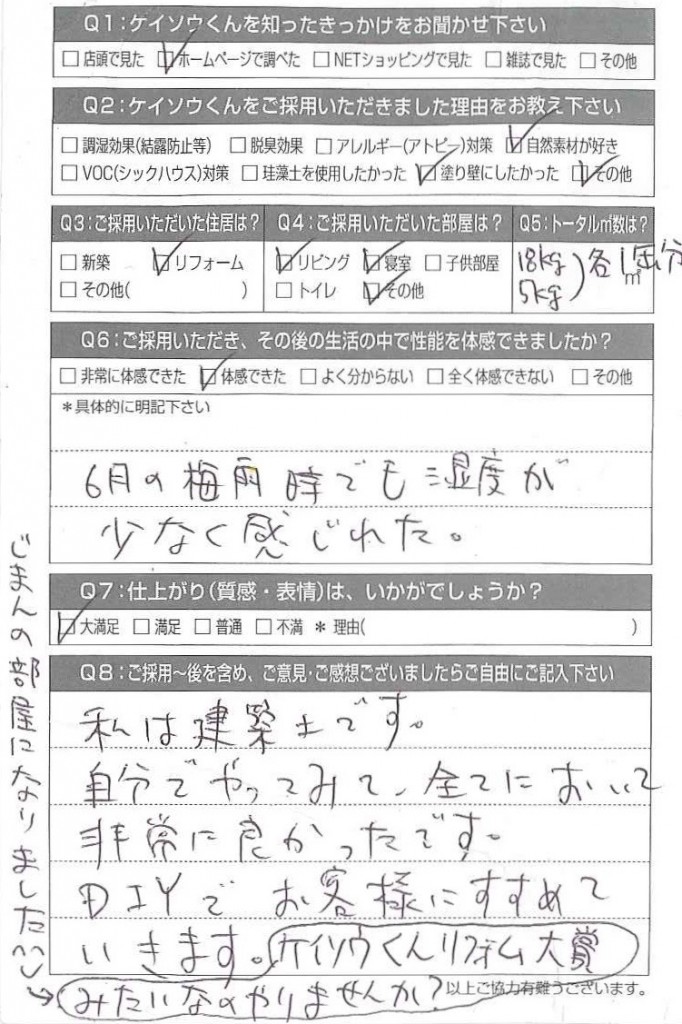 Q1:ケイソウくんを知ったきっかけをお聞かせ下さい
□店頭で見た ☑ホームページで調べた □NETショッピングで見た □雑誌で見た □その他
Q2:ケイソウくんをご採用いただきました理由をお教え下さい
□調湿効果(結露防止等) □脱臭効果 □アレルギー(アトピー)対策 ☑自然素材が好き
□VOC(シックハウス)対策 □珪藻土を使用したかった ☑塗り壁にしたかった ☑その他
Q3:ご採用いただいた住居は? Q4:ご採用いただいた部屋は? Q5:トータル㎡数は?
□新築 ☑リフォーム ☑リビング ☑寝室 □子供部屋 18kg 5kg )各1缶分 ㎡
□その他( ) □トイレ ☑その他
Q6:ご採用いただき、その後の生活の中で性能を体感できましたか?
□非常に体感できた ☑体感できた □よく分からない □全く体感できない □その他
*具体的に明記下さい
6月の梅雨時でも湿度が
少なく感じれた。
Q7:仕上がり(質感・表情)は、いかがでしょうか?
☑大満足 □満足 □普通 □不満 *理由( )
Q8:ご採用〜後を含め、ご意見・ご感想ございましたらご自由にご記入下さい
私は建築士です。
自分でやってみて、全てにおいて
非常に良かったです。
DIYでお客様にすすめて
いきます。ケイソウくんリフォーム大賞
みたいなのやりませんか?
以上ご協力有難うございます。
じまんの部屋になりました^^